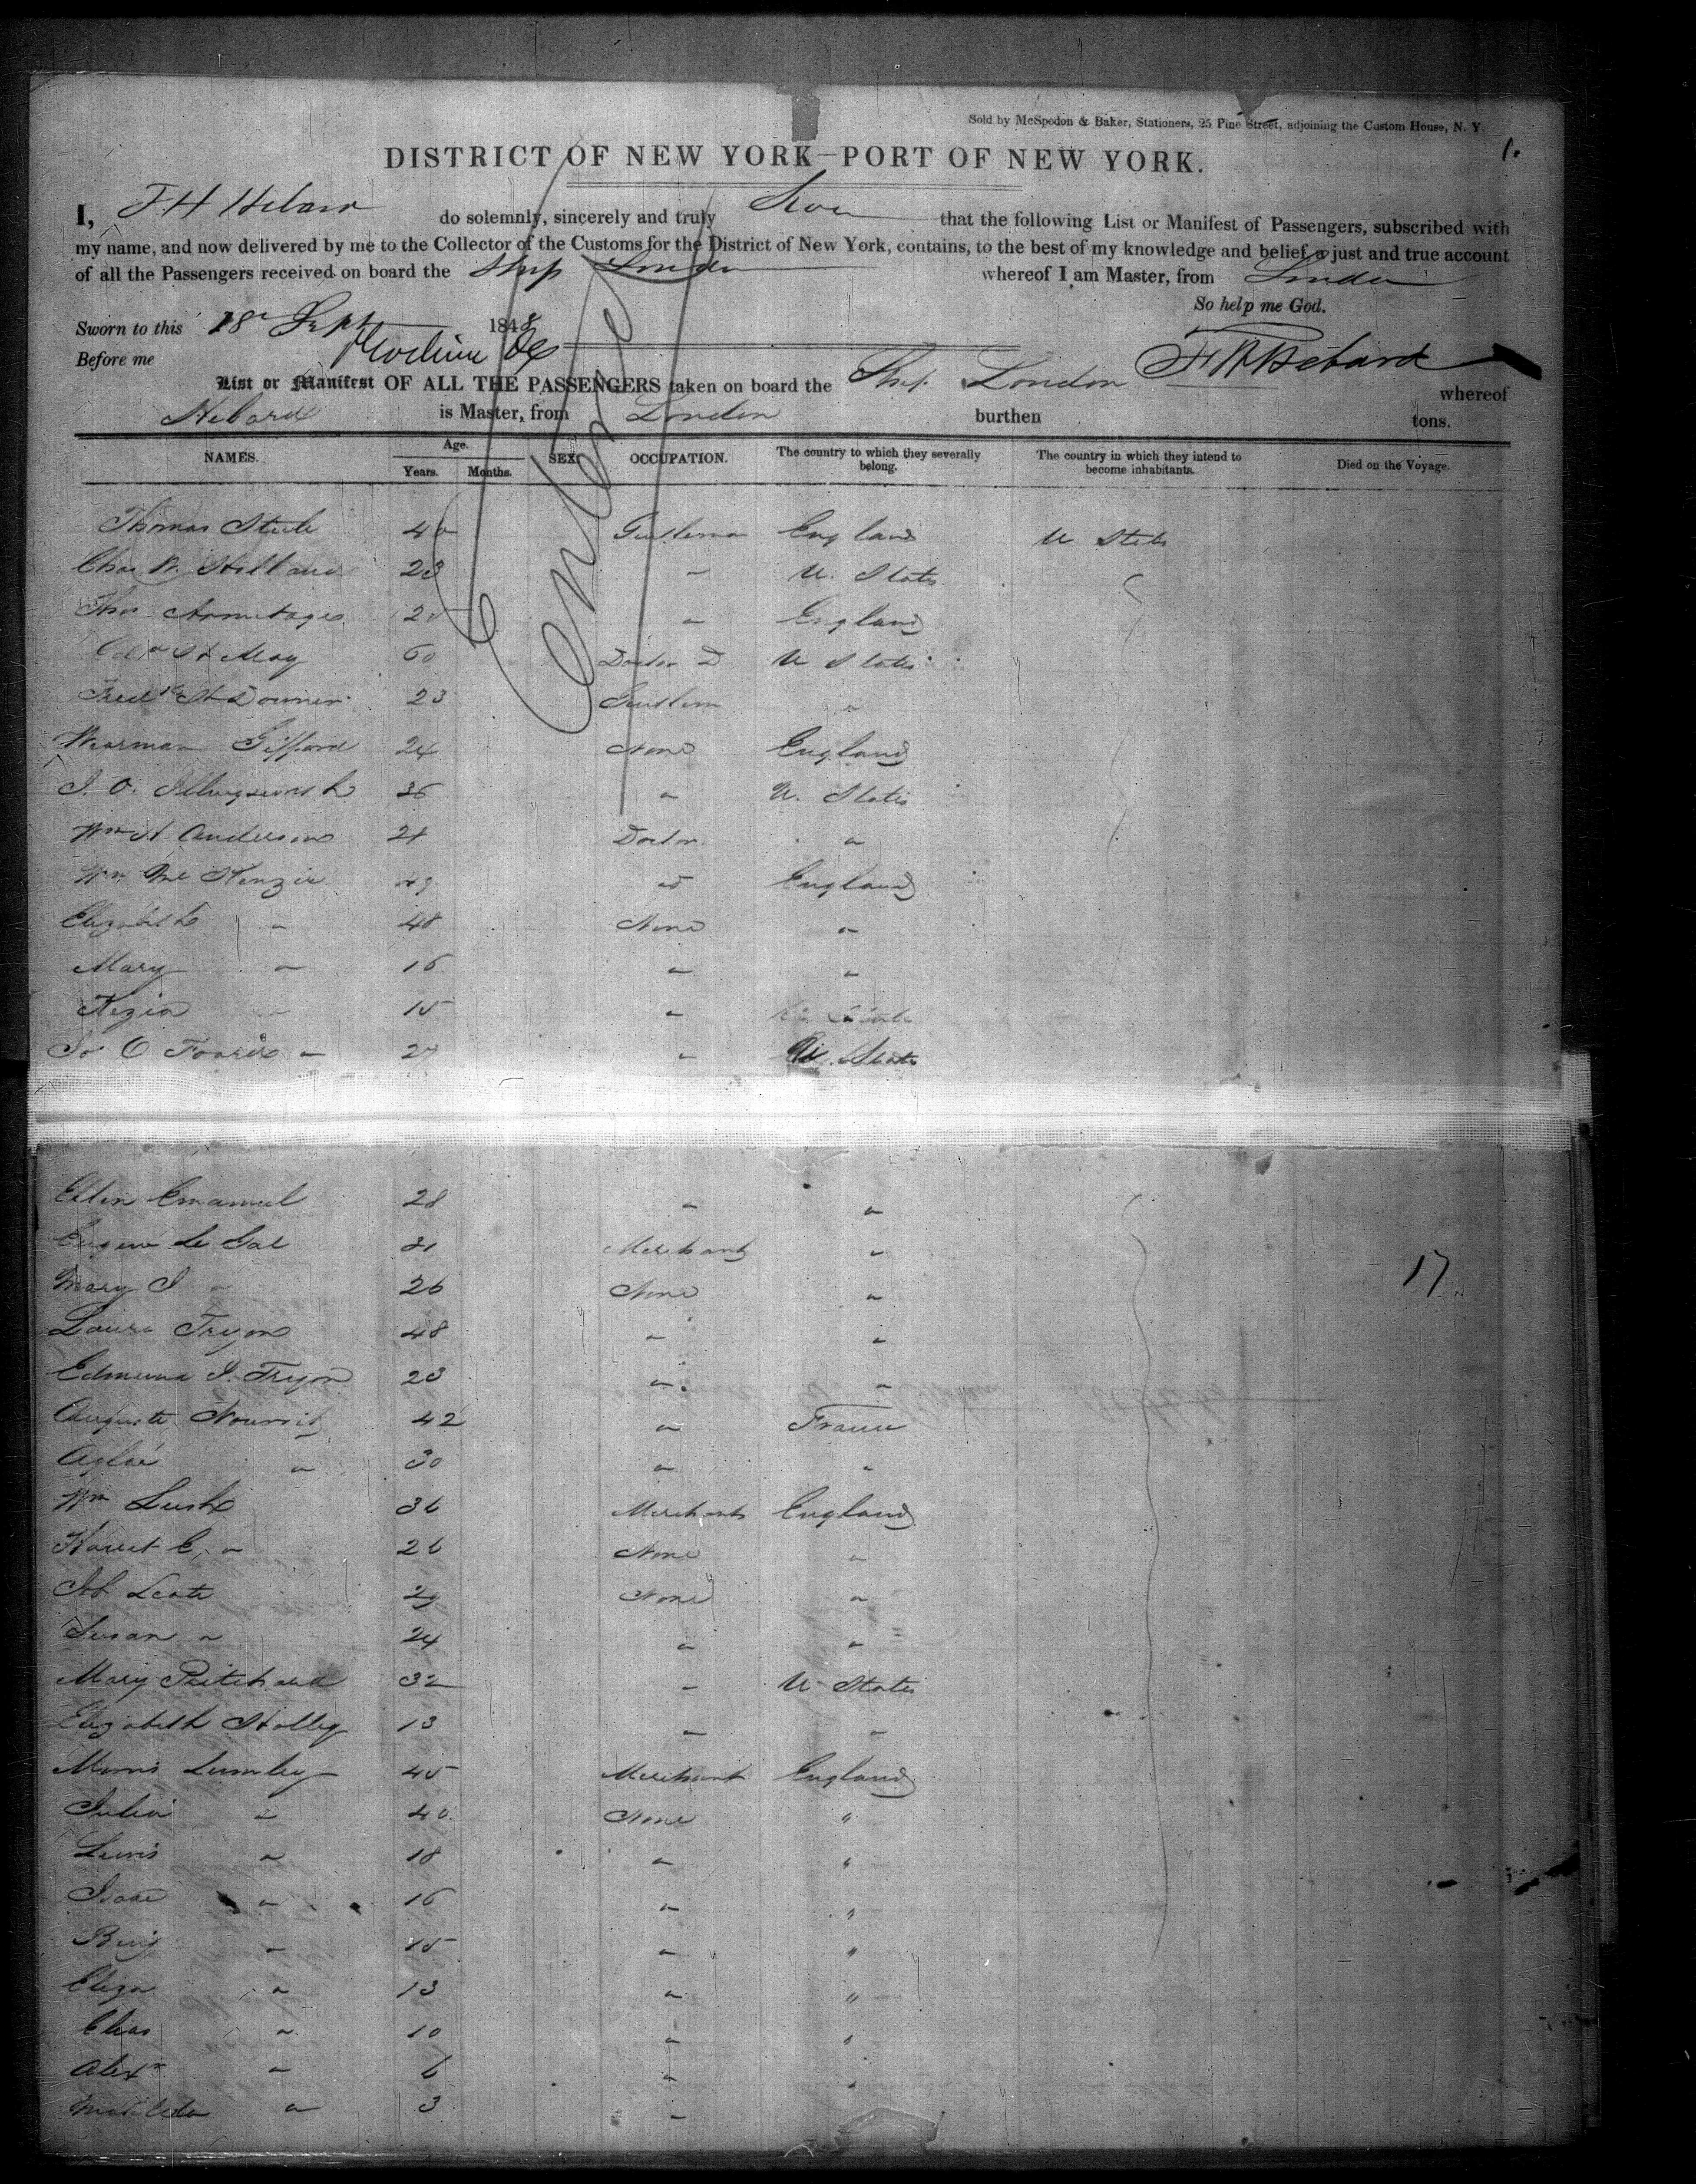 Sold by McSpedon & Baker, Stationers, 25 Pine Street, adjoining the Custom House, N. Y.
1.
DISTRICT OF NEW YORK—PORT OF NEW YORK.
I, F H Hebard do solemnly, sincerely and truly that the following List or Manifest of Passengers, subscribed with
my name, and now delivered by me to the Collector of the Customs for the District of New York, contains, to the best of my knowledge and belief, a just and true account
of all the Passengers received on board the Ship London whereof I am Master, from London
So help me God.
Sworn to this 18 Sept 1848
Before me F H Hebard
List or Manifest OF ALL THE PASSENGERS taken on board the Ship London whereof
Hebard is Master, from London burthen tons.
Entered
NAMES. Age. Years. Months. SEX. OCCUPATION. The country to which they severally belong. The country in which they intend to become inhabitants. Died on the Voyage.
Thomas Steele 40 Gentleman England U States
Chas W. Holland 23 " U. States
Thos Armitage 25 " England
May 60 Doctor D U States
Fredk 23 Gentlem "
Gifford 24 None England
J. O. Illingworth 36 " U. States
Wm H Anderson 21 Doctor "
Wm McKenzie 49 do England
Elizabeth " 48 None "
Mary " 16 " "
Kezia " 15 "
27 " U. States
Ellen Emanuel 28 " "
Eugene Le Gal 31 Merchant "
Mary J " 26 None "
17
Laura Tryon 48 " "
Edmund J. Tryon 23 " "
Auguste Nourrit 42 " France
Aglaé " 30 " "
Wm Lush 36 Merchant England
Harriet E. " 26 None "
Leate 29 None "
Susan " 24 " "
Mary Pritchard 32 " U States
Elizabeth Holley 13 " "
Morris Lumley 45 Merchant England
Julia " 40 None "
Lewis " 18 " "
Isaac " 16 " "
Benj " 15 " "
Eliza " 13 " "
Elias " 10 " "
Alexr " 6 " "
Matilda " 3 "